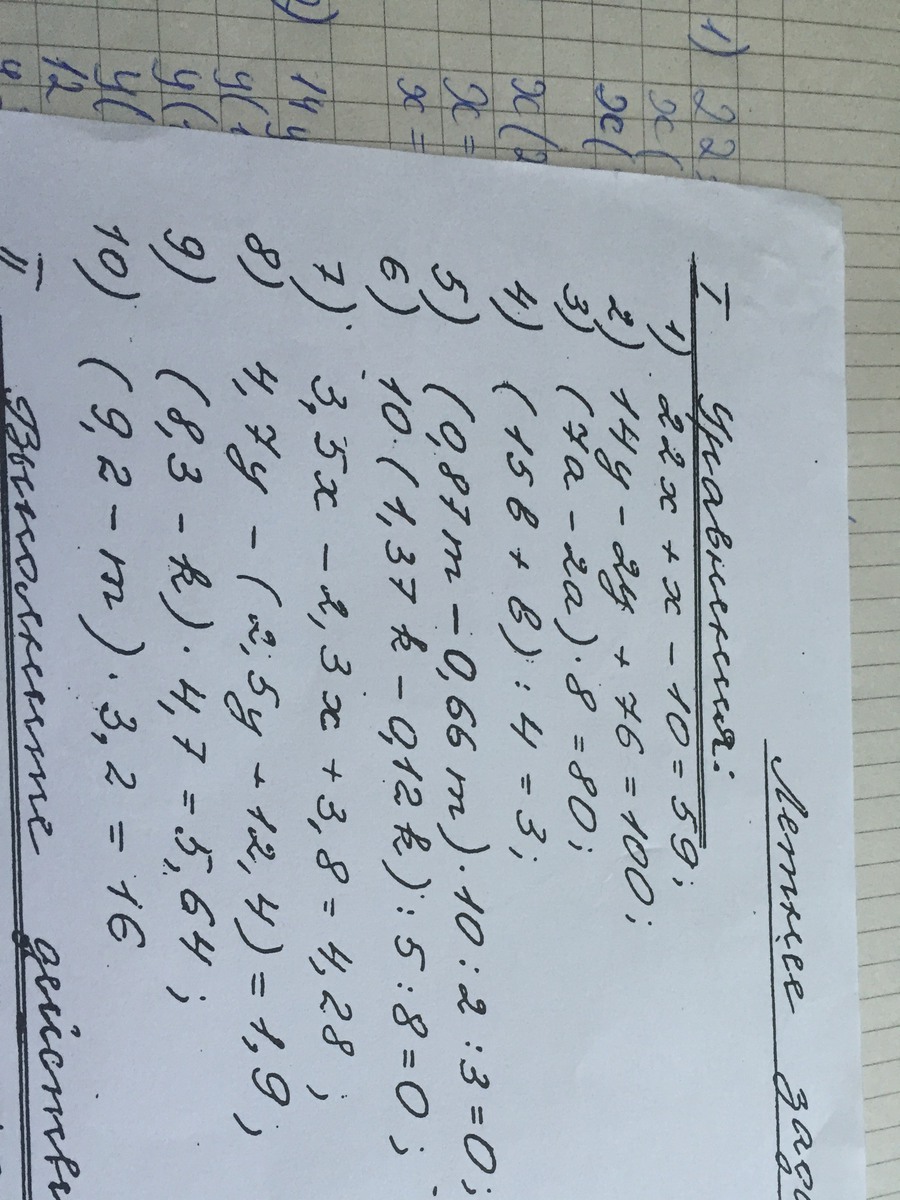 1) 22
x(
x(
x(2
x =
x =
14y
y(
y(
y(
12
Летнее
I Уравнения:
1) 22x + x - 10 = 59;
2) 14y - 2y + 76 = 100;
3) (7a - 2a) · 8 = 80;
4) (15в + в) : 4 = 3;
5) (0,87m - 0,66m) · 10 : 2 : 3 = 0;
6) 10 · (1,37k - 0,12k) : 5 : 8 = 0;
7) 3,5x - 2,3x + 3,8 = 4,28;
8) 4,7y - (2,5y + 12,4) = 1,9;
9) (8,3 - k) · 4,7 = 5,64;
10) (9,2 - m) · 3,2 = 16
II Выполните